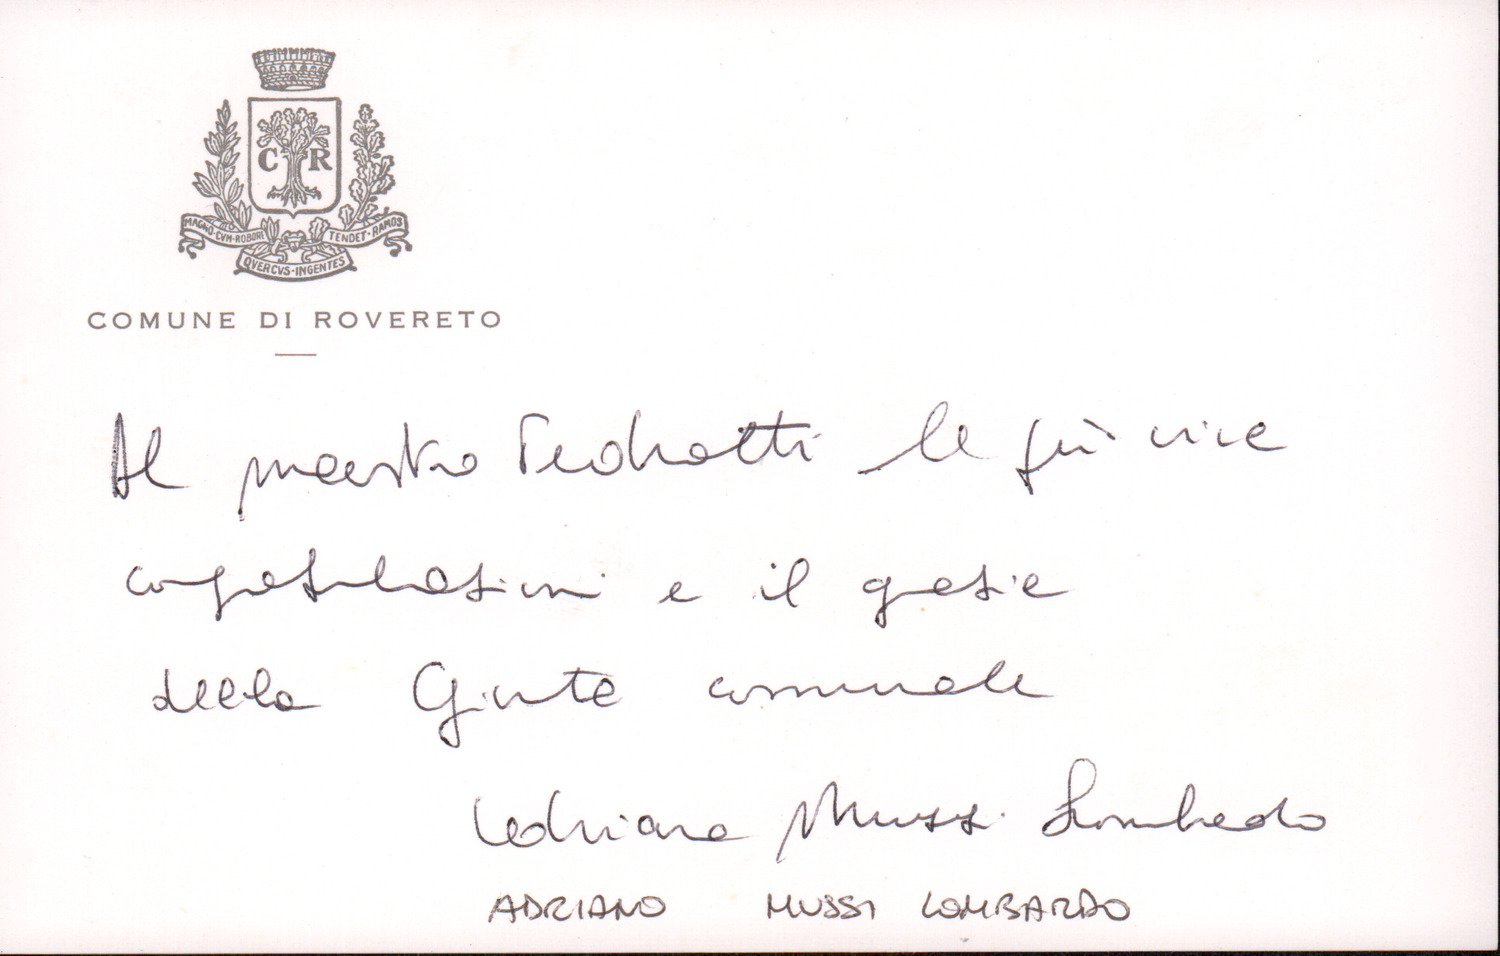 C R
MAGNO·CVM·ROBORE
QVERCVS·INGENTES
TENDET·RAMOS
COMUNE DI ROVERETO
Al maestro Pedrotti le più vive
congratulazioni e il grazie
della Giunta comunale
Adriana Mussi Lombardo
ADRIANO MUSSI LOMBARDO